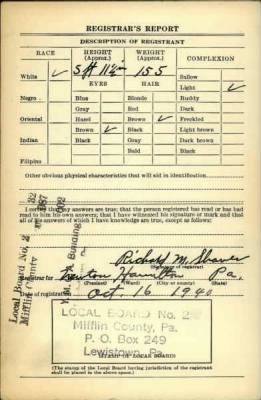 REGISTRAR'S REPORT
DESCRIPTION OF REGISTRANT
RACE HEIGHT (Approx.) WEIGHT (Approx.) COMPLEXION
White ✓ 5 ft 11½ in 155 Sallow
EYES HAIR Light ✓
Negro Blue Blonde Ruddy
Gray Red Dark
Oriental Hazel Brown ✓ Freckled
Brown ✓ Black Light brown
Indian Black Gray Dark brown
Bald Black
Filipino
Other obvious physical characteristics that will aid in identification
I certify that my answers are true; that the person registered has read or has had
read to him his own answers; that I have witnessed his signature or mark and that
all of his answers of which I have knowledge are true, except as follows:
Local Board No. 2
Mifflin County
Building
Richard M. Shaver
Registrar for Newton Hamilton Pa.
(Precinct) (Ward) (City or county) (State)
Date of registration Oct. 16 1940
LOCAL BOARD No. 2
Mifflin County, Pa.
P. O. Box 249
Lewistown, Pa.
(STAMP OF LOCAL BOARD)
(The stamp of the Local Board having jurisdiction of the registrant
shall be placed in the above space.)